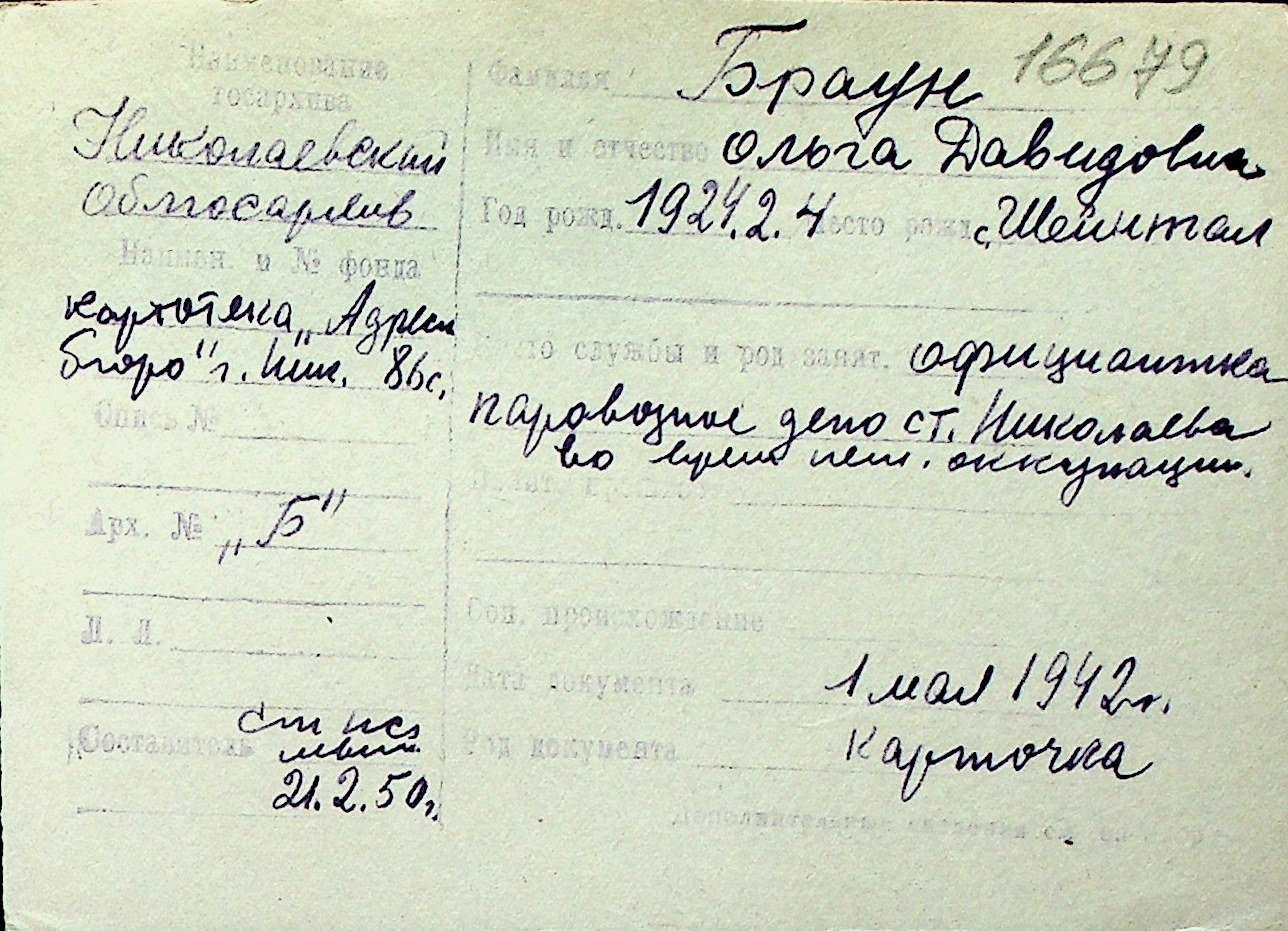 Наименование
госархива
Николаевский
Облгосархив
Наимен. и № фонда
картотека „Адресн
бюро" г. Ник. 86с.
Опись №
Арх. № „Б"
Л. Л.
Составитель
21.2.50г.
16679
Фамилия Браун
Имя и отчество Ольга Давидовна
Год рожд. 1924.2.4 Место рожд. с. Шейнтал
Место службы и род занят. официантка
паровозное депо ст. Николаева
во время нем. оккупации.
Соц. происхождение
Дата документа 1 мая 1942 г.
Род документа карточка
Дополнительные сведения см. на обор.